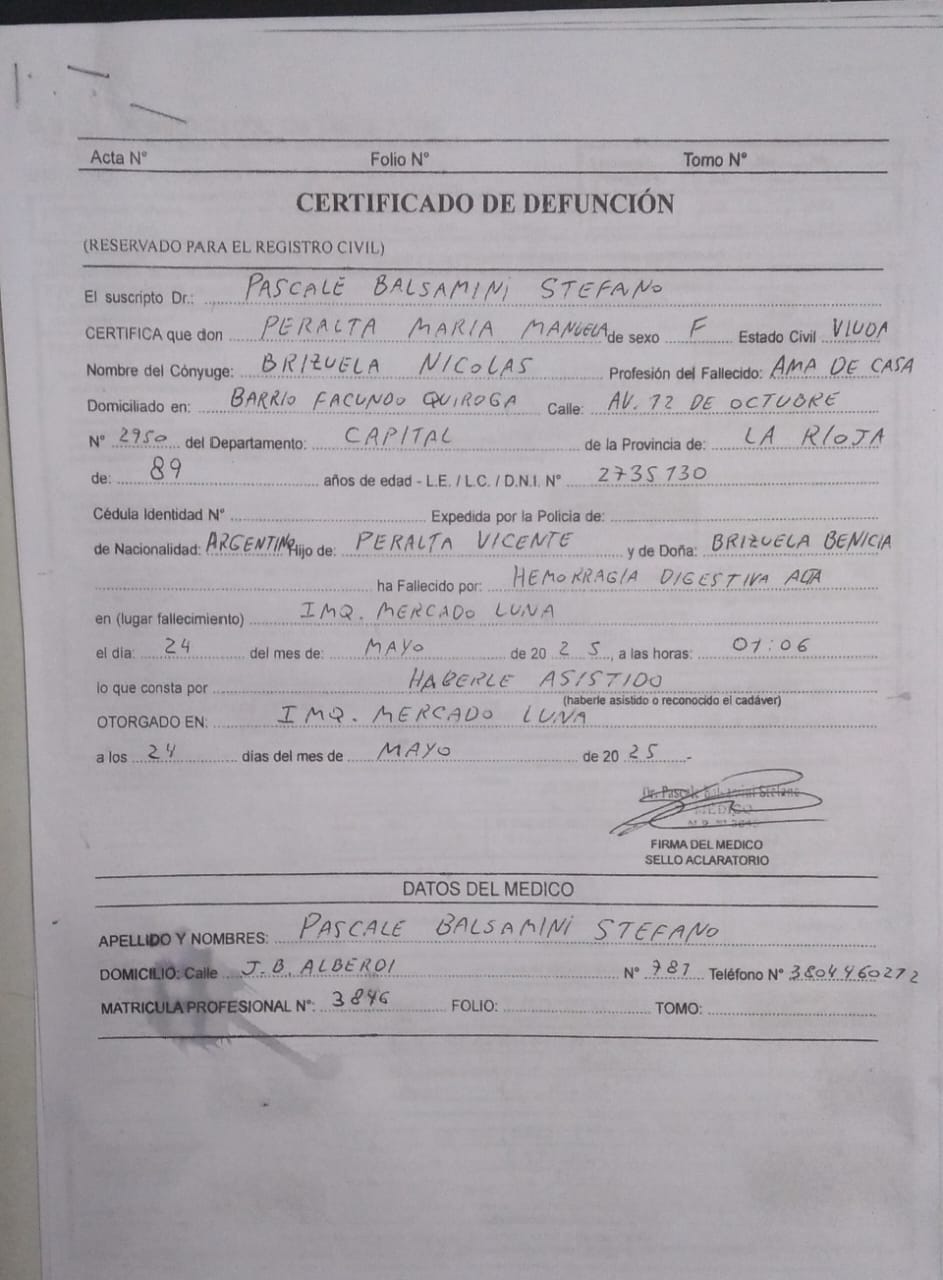 Acta N° Folio N° Tomo N°
CERTIFICADO DE DEFUNCIÓN
(RESERVADO PARA EL REGISTRO CIVIL)
El suscripto Dr.: PASCALE BALSAMINI STEFANO
CERTIFICA que don PERALTA MARIA MANUELA de sexo F Estado Civil VIUDA
Nombre del Cónyuge: BRIZUELA NICOLAS Profesión del Fallecido: AMA DE CASA
Domiciliado en: BARRIO FACUNDO QUIROGA Calle: AV. 12 DE OCTUBRE
N° 2950 del Departamento: CAPITAL de la Provincia de: LA RIOJA
de: 89 años de edad - L.E. / L.C. / D.N.I. N° 2735130
Cédula Identidad N° Expedida por la Policia de:
de Nacionalidad: ARGENTINA Hijo de: PERALTA VICENTE y de Doña: BRIZUELA BENICIA
ha Fallecido por: HEMORRAGIA DIGESTIVA ALTA
en (lugar fallecimiento) IMQ. MERCADO LUNA
el dia: 24 del mes de: MAYO de 20 25, a las horas: 01:06
lo que consta por HABERLE ASISTIDO
(haberle asistido o reconocido el cadáver)
OTORGADO EN: IMQ. MERCADO LUNA
a los 24 días del mes de MAYO de 20 25.-
Dr. Pascale Balsamini Stefano
MEDICO
FIRMA DEL MEDICO
SELLO ACLARATORIO
DATOS DEL MEDICO
APELLIDO Y NOMBRES: PASCALE BALSAMINI STEFANO
DOMICILIO: Calle J.B. ALBERDI N° 781 Teléfono N° 3804460272
MATRICULA PROFESIONAL N°: 3846 FOLIO: TOMO: